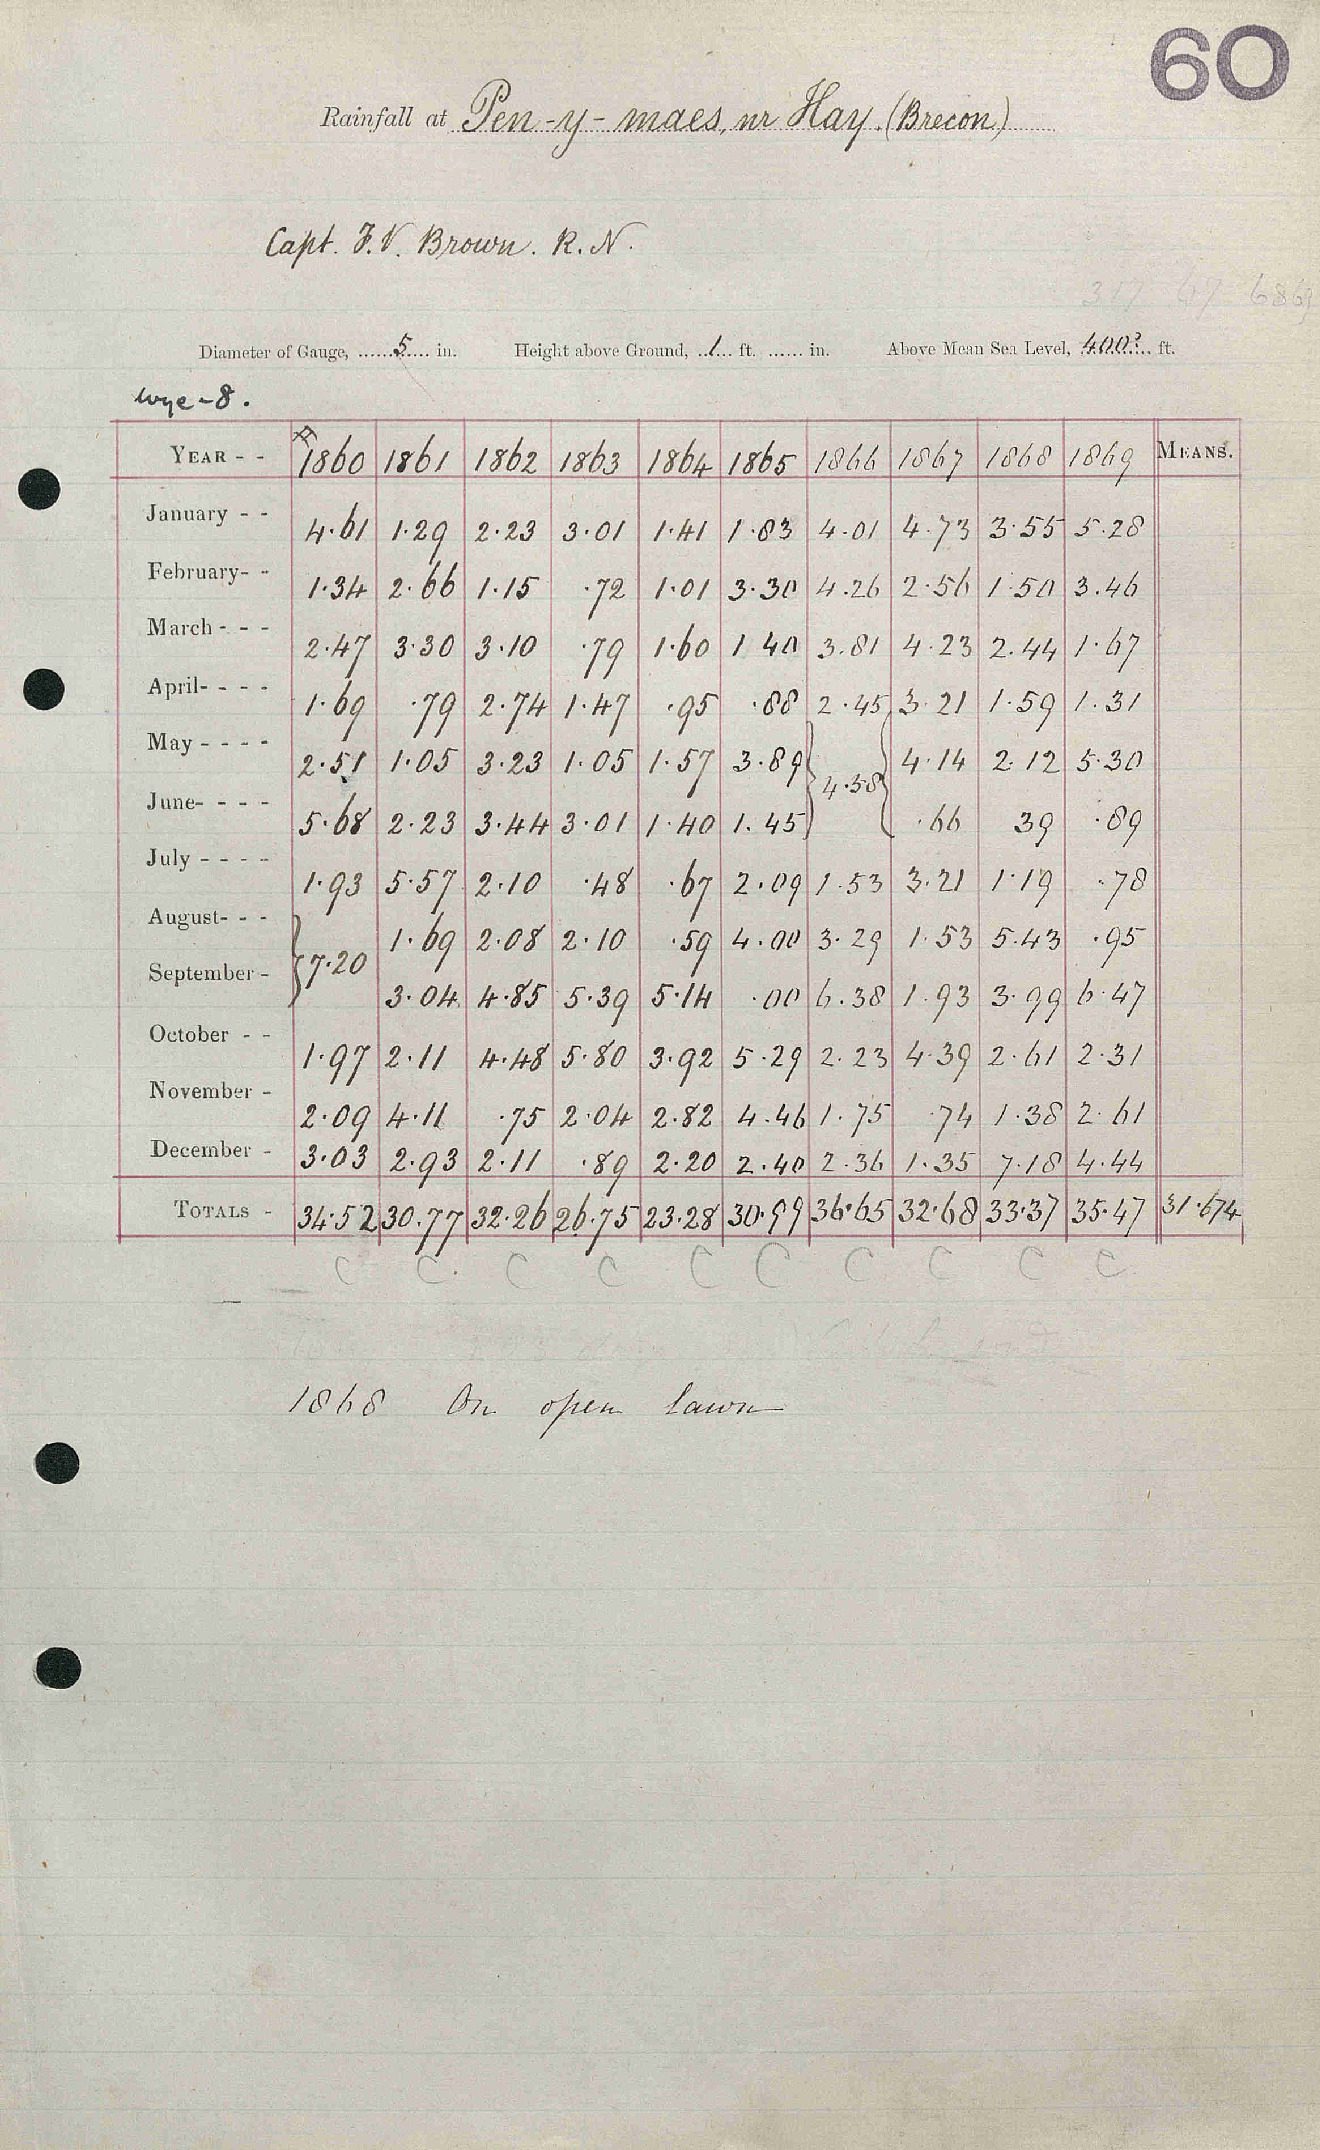 60
Rainfall at Pen-y-maes, nr Hay. (Brecon)
Capt. F.V. Brown. R.N.
317 47 6869
Diameter of Gauge, 5 in. Height above Ground, 1 ft. in. Above Mean Sea Level, 400? ft.
Wye-8.
YEAR - - 1860 1861 1862 1863 1864 1865 1866 1867 1868 1869 MEANS.
January - - 4.61 1.29 2.23 3.01 1.41 1.83 4.01 4.73 3.55 5.28
February- - 1.34 2.66 1.15 .72 1.01 3.30 4.26 2.56 1.50 3.46
March - - - 2.47 3.30 3.10 .79 1.60 1 40 3.81 4.23 2.44 1.67
April- - - - 1.69 .79 2.74 1.47 .95 .88 2.45 3.21 1.59 1.31
May - - - - 2.51 1.05 3.23 1.05 1.57 3.89 } 4.58 { 4.14 2.12 5.30
June- - - - 5.68 2.23 3.44 3.01 1.40 1.45 .66 39 .89
July - - - - 1.93 5.57 2.10 .48 .67 2.09 1.53 3.21 1.19 .78
August- - - } 7.20 1.69 2.08 2.10 .59 4.00 3.29 1.53 5.43 .95
September - 3.04 4.85 5.39 5.14 .00 6.38 1.93 3.99 6.47
October - - 1.97 2.11 4.48 5.80 3.92 5.29 2.23 4.39 2.61 2.31
November - 2.09 4.11 .75 2.04 2.82 4.46 1.75 .74 1.38 2.61
December - 3.03 2.93 2.11 .89 2.20 2.40 2.36 1.35 7.18 4.44
TOTALS - 34.52 30.77 32.26 26.75 23.28 30.99 36.65 32.68 33.37 35.47 31.674
C C C C C C C C C C
1868 On open lawn